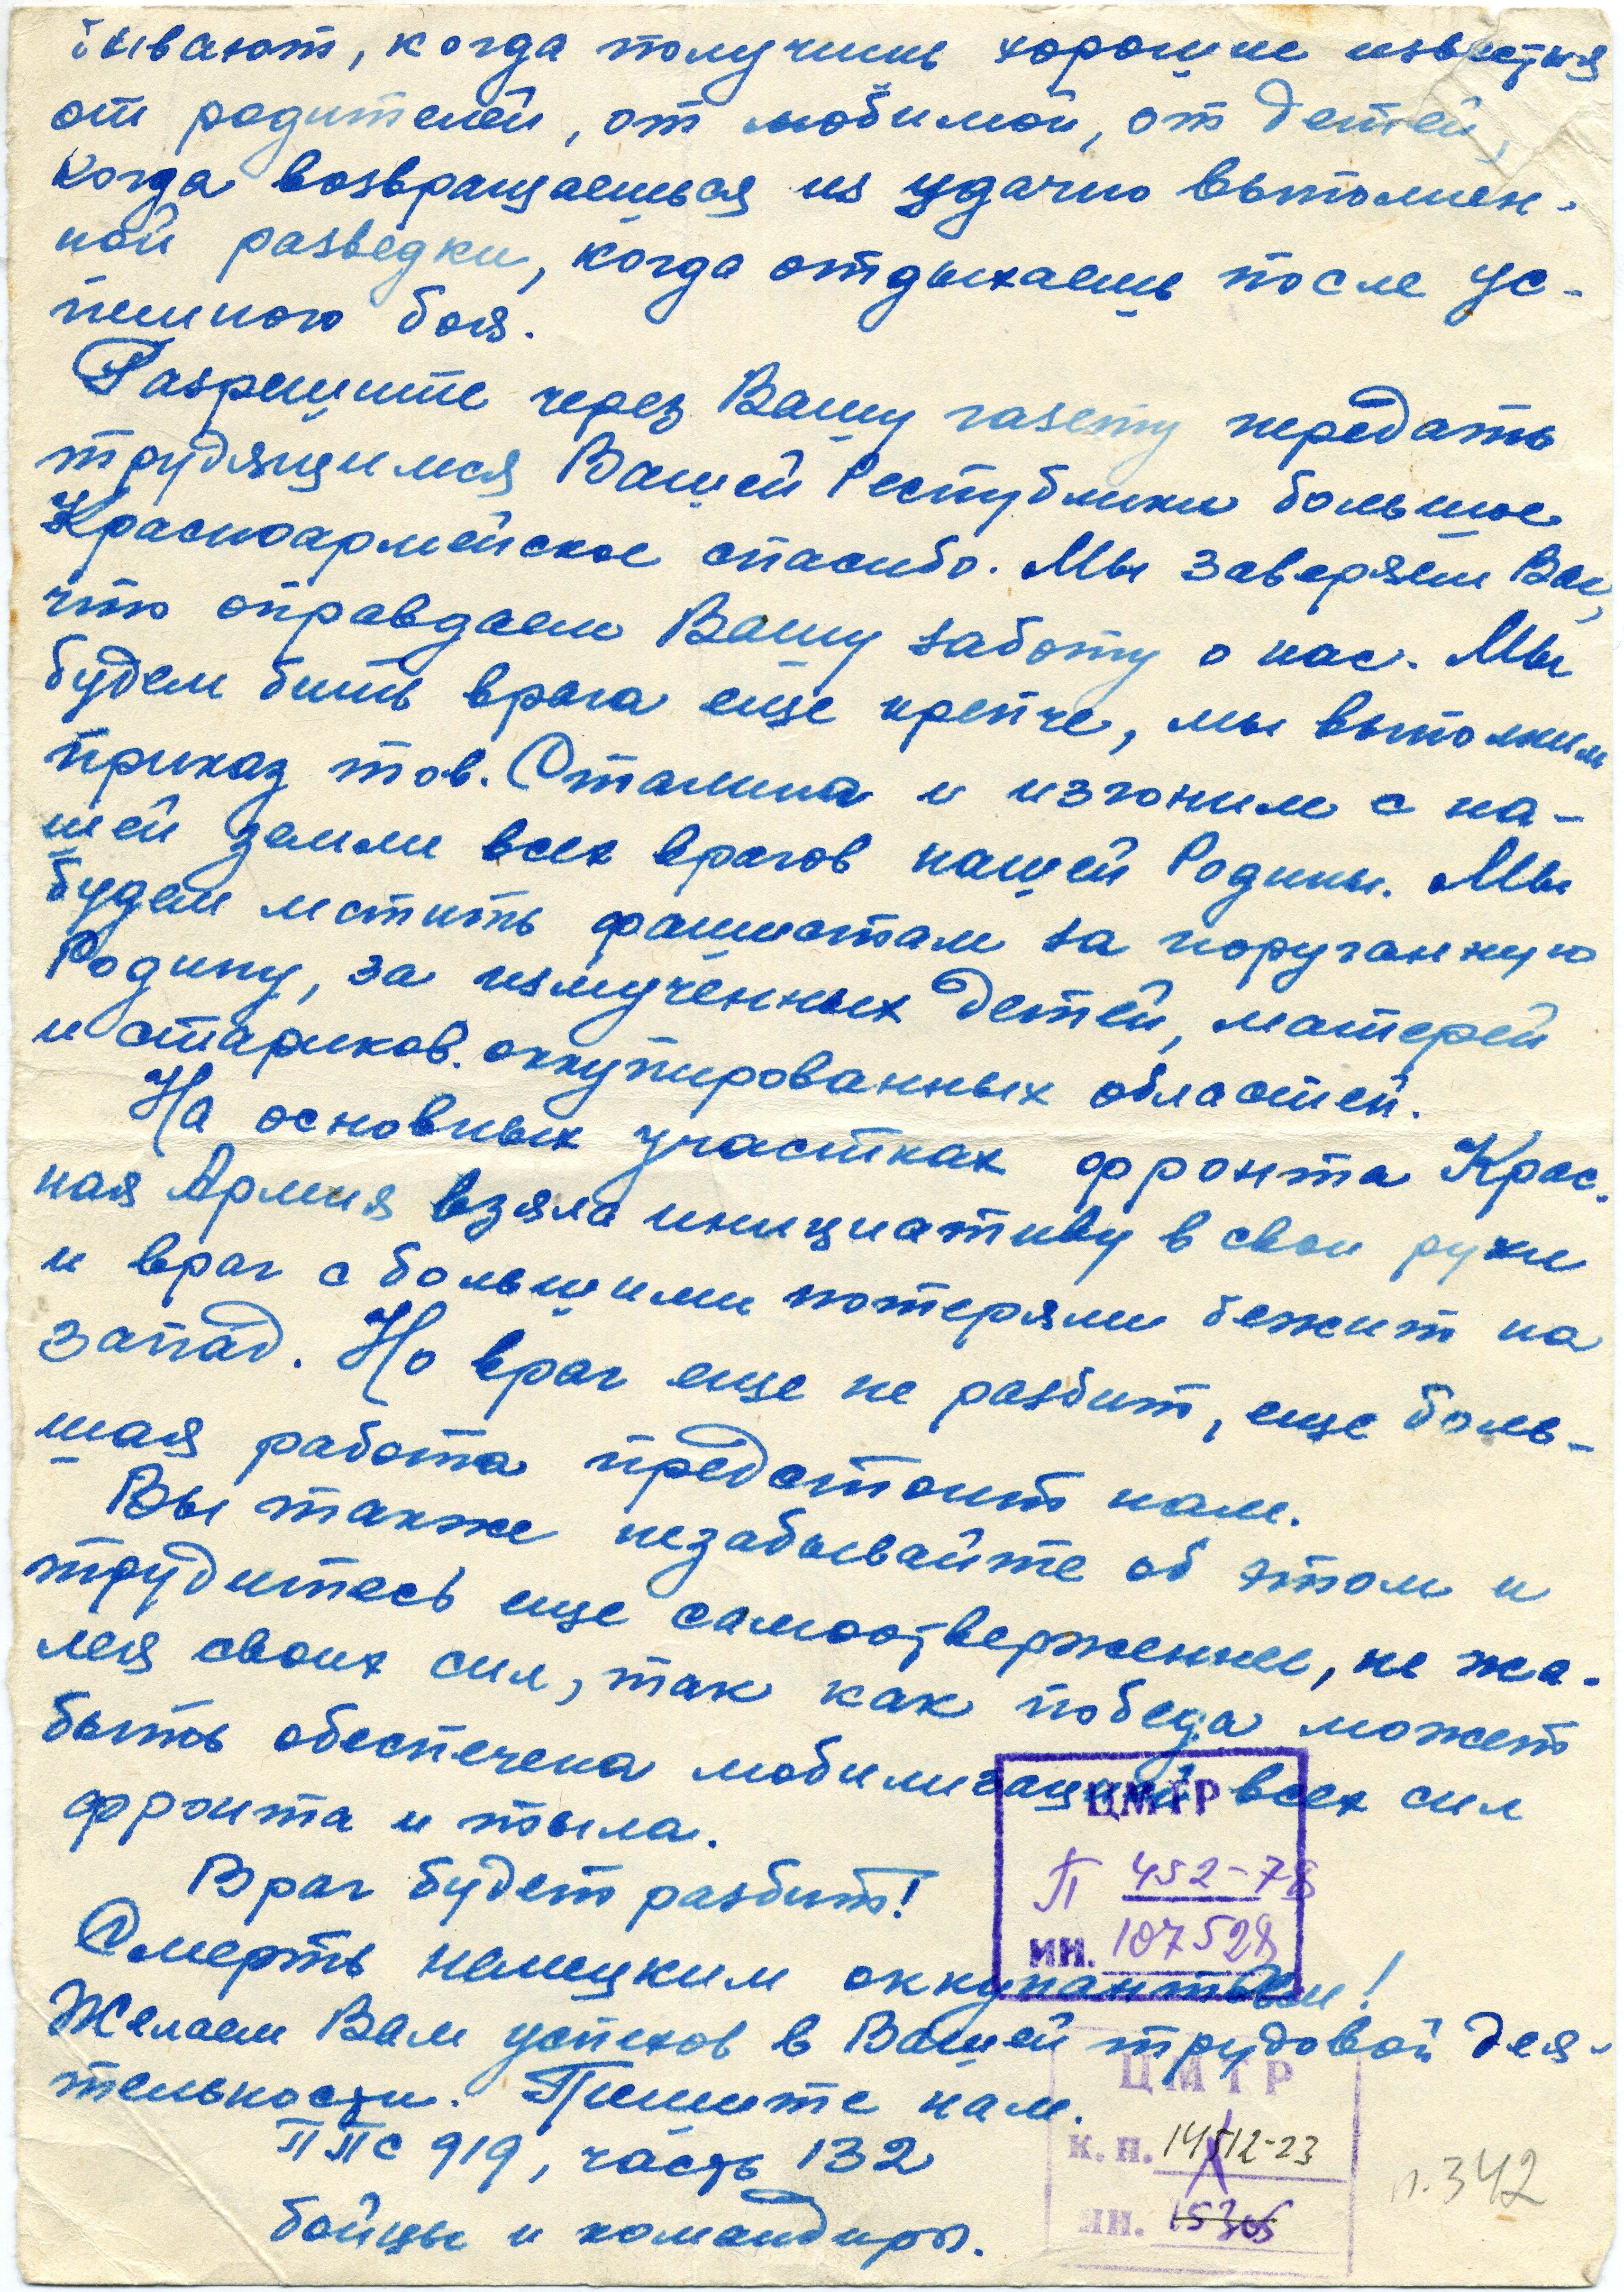 бывают, когда получишь хорошие известия
от родителей, от любимой, от детей,
когда возвращаешься из удачно выполнен-
ной разведки, когда отдыхаешь после ус-
пешного боя.
Разрешите через Вашу газету передать
трудящимся Вашей Республики большое
Красноармейское спасибо. Мы заверяем Вас,
что оправдаем Вашу заботу о нас. Мы
будем бить врага еще крепче, мы выполним
приказ тов. Сталина и изгоним с на-
шей земли всех врагов нашей Родины. Мы
будем мстить фашистам за поруганную
Родину, за измученных детей, матерей
и стариков оккупированных областей.
На основных участках фронта Крас-
ная Армия взяла инициативу в свои руки
и враг с большими потерями бежит на
запад. Но враг еще не разбит, еще боль-
шая работа предстоит нам.
Вы также незабывайте об этом и
трудитесь еще самоотверженнее, не жа-
лея своих сил, так как победа может
быть обеспечена мобилизацией всех сил
фронта и тыла.
Враг будет разбит!
Смерть немецким оккупантам!
Желаем Вам успехов в Вашей трудовой дея-
тельности. Пишите нам.
ППС 919, часть 132
бойцы и командиры.
ЦМТР
П 452-78
ин. 107528
ЦМТР
К. П. 14512-23
ин. 15305
л. 342